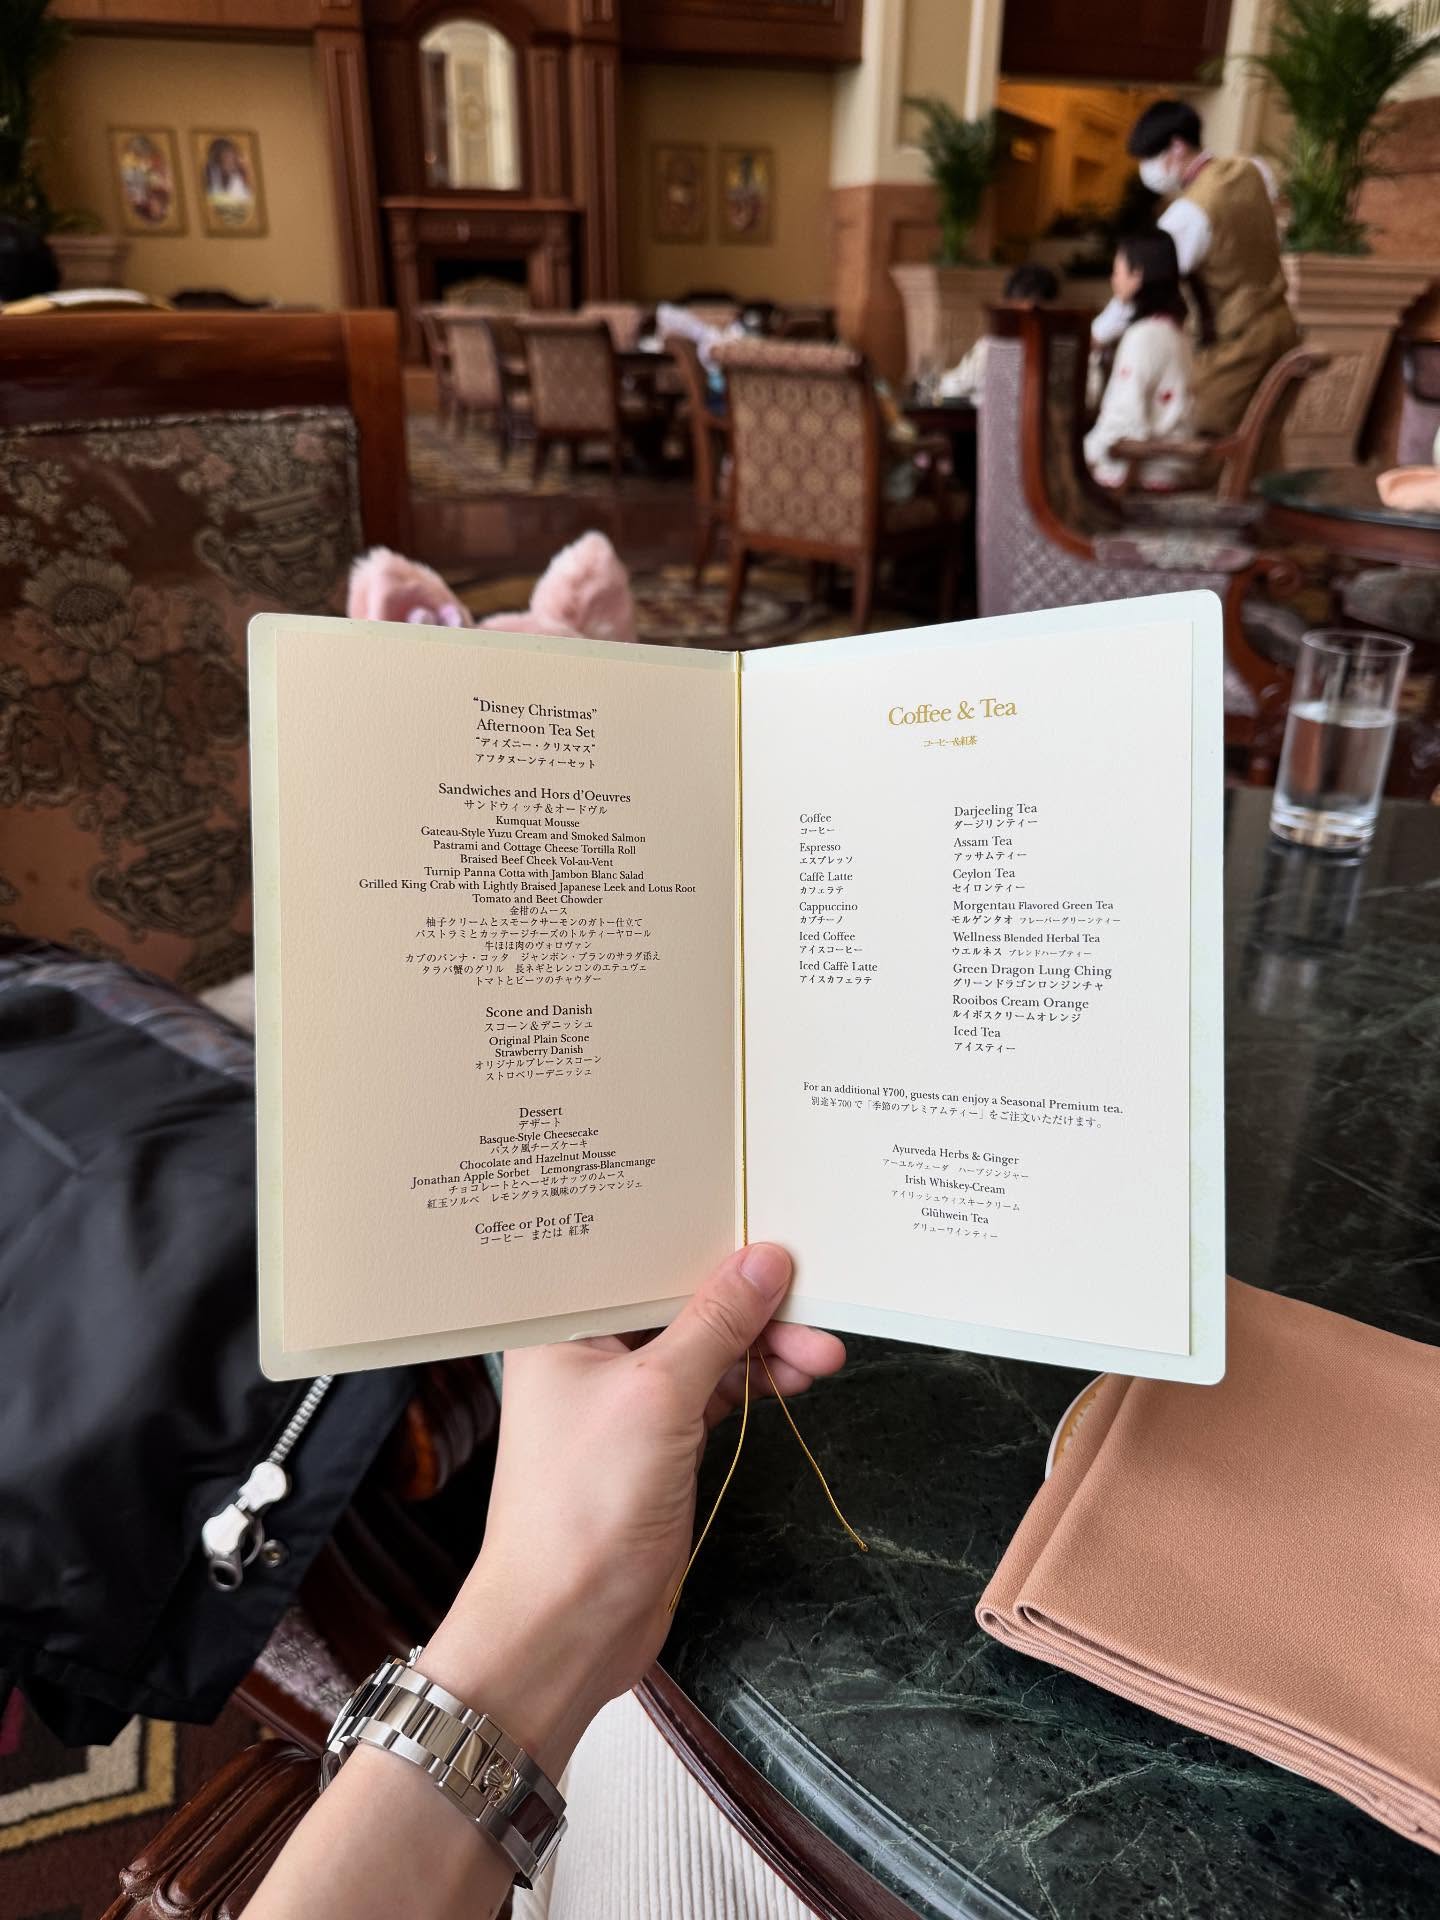 “Disney Christmas”
Afternoon Tea Set
“ディズニー・クリスマス”
アフタヌーンティーセット
Sandwiches and Hors d’Oeuvres
サンドウィッチ＆オードヴル
Kumquat Mousse
Gateau-Style Yuzu Cream and Smoked Salmon
Pastrami and Cottage Cheese Tortilla Roll
Braised Beef Cheek Vol-au-Vent
Turnip Panna Cotta with Jambon Blanc Salad
Grilled King Crab with Lightly Braised Japanese Leek and Lotus Root
Tomato and Beet Chowder
金柑のムース
柚子クリームとスモークサーモンのガトー仕立て
パストラミとカッテージチーズのトルティーヤロール
牛ほほ肉のヴォロヴァン
カブのパンナ・コッタ　ジャンボン・ブランのサラダ添え
タラバ蟹のグリル　長ネギとレンコンのエテュヴェ
トマトとビーツのチャウダー
Scone and Danish
スコーン＆デニッシュ
Original Plain Scone
Strawberry Danish
オリジナルプレーンスコーン
ストロベリーデニッシュ
Dessert
デザート
Basque-Style Cheesecake
バスク風チーズケーキ
Chocolate and Hazelnut Mousse
Jonathan Apple Sorbet　Lemongrass-Blancmange
チョコレートとヘーゼルナッツのムース
紅玉ソルベ　レモングラス風味のブランマンジェ
Coffee or Pot of Tea
コーヒー または 紅茶
Coffee & Tea
コーヒー&紅茶
Coffee
コーヒー
Espresso
エスプレッソ
Caffè Latte
カフェラテ
Cappuccino
カプチーノ
Iced Coffee
アイスコーヒー
Iced Caffè Latte
アイスカフェラテ
Darjeeling Tea
ダージリンティー
Assam Tea
アッサムティー
Ceylon Tea
セイロンティー
Morgentau Flavored Green Tea
モルゲンタオ フレーバーグリーンティー
Wellness Blended Herbal Tea
ウエルネス ブレンドハーブティー
Green Dragon Lung Ching
グリーンドラゴンロンジンチャ
Rooibos Cream Orange
ルイボスクリームオレンジ
Iced Tea
アイスティー
For an additional ¥700, guests can enjoy a Seasonal Premium tea.
別途￥700 で「季節のプレミアムティー」をご注文いただけます。
Ayurveda Herbs & Ginger
アーユルヴェーダ　ハーブジンジャー
Irish Whiskey-Cream
アイリッシュウィスキークリーム
Glühwein Tea
グリューワインティー